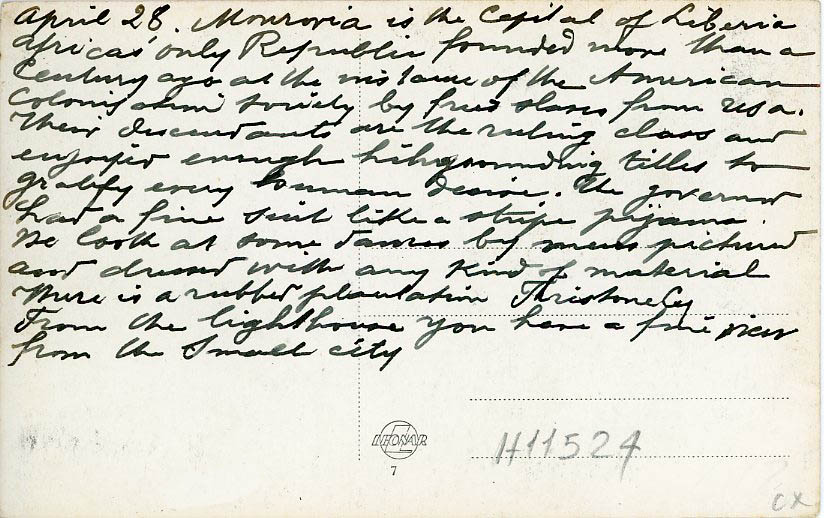 April 28. Monrovia is the Capital of Liberia
africas' only Republic founded more than a
Century ago at the instance of the American
Colonisation Society by freed slaves from USA.
Their descendants are the ruling class and
enjoyed enough highsounding titles to
gratify every human desire. The governor
had a fine suit like a stripe pijama.
We look at some dances by mens pictured
and dressed with any kind of material
There is a rubber plantation Firistone Cy
From the lighthouse you have a fine view
from the Small city
LEONAR
7
H11524
CX